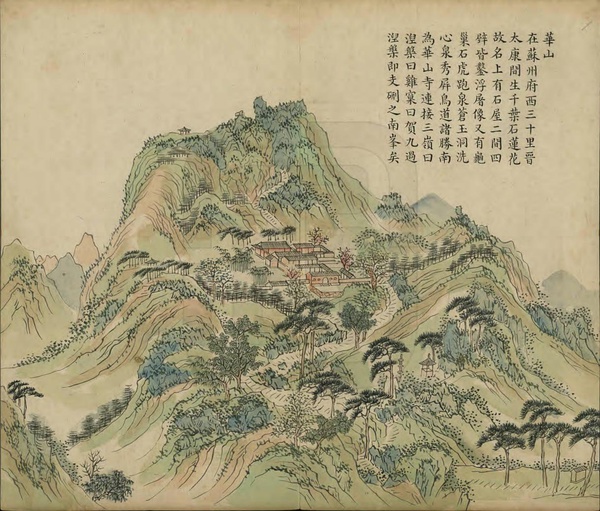 華山
在蘇州府西三十里晉
太康間生千葉石蓮花
故名上有石屋二間四
壁皆鑿浮屠像又有龜
巢石虎跑泉蒼玉洞洗
心泉秀屏鳥道諸勝南
為華山寺連接三嶺曰
涅槃曰雞窠曰賀九過
涅槃即支硎之南峯矣